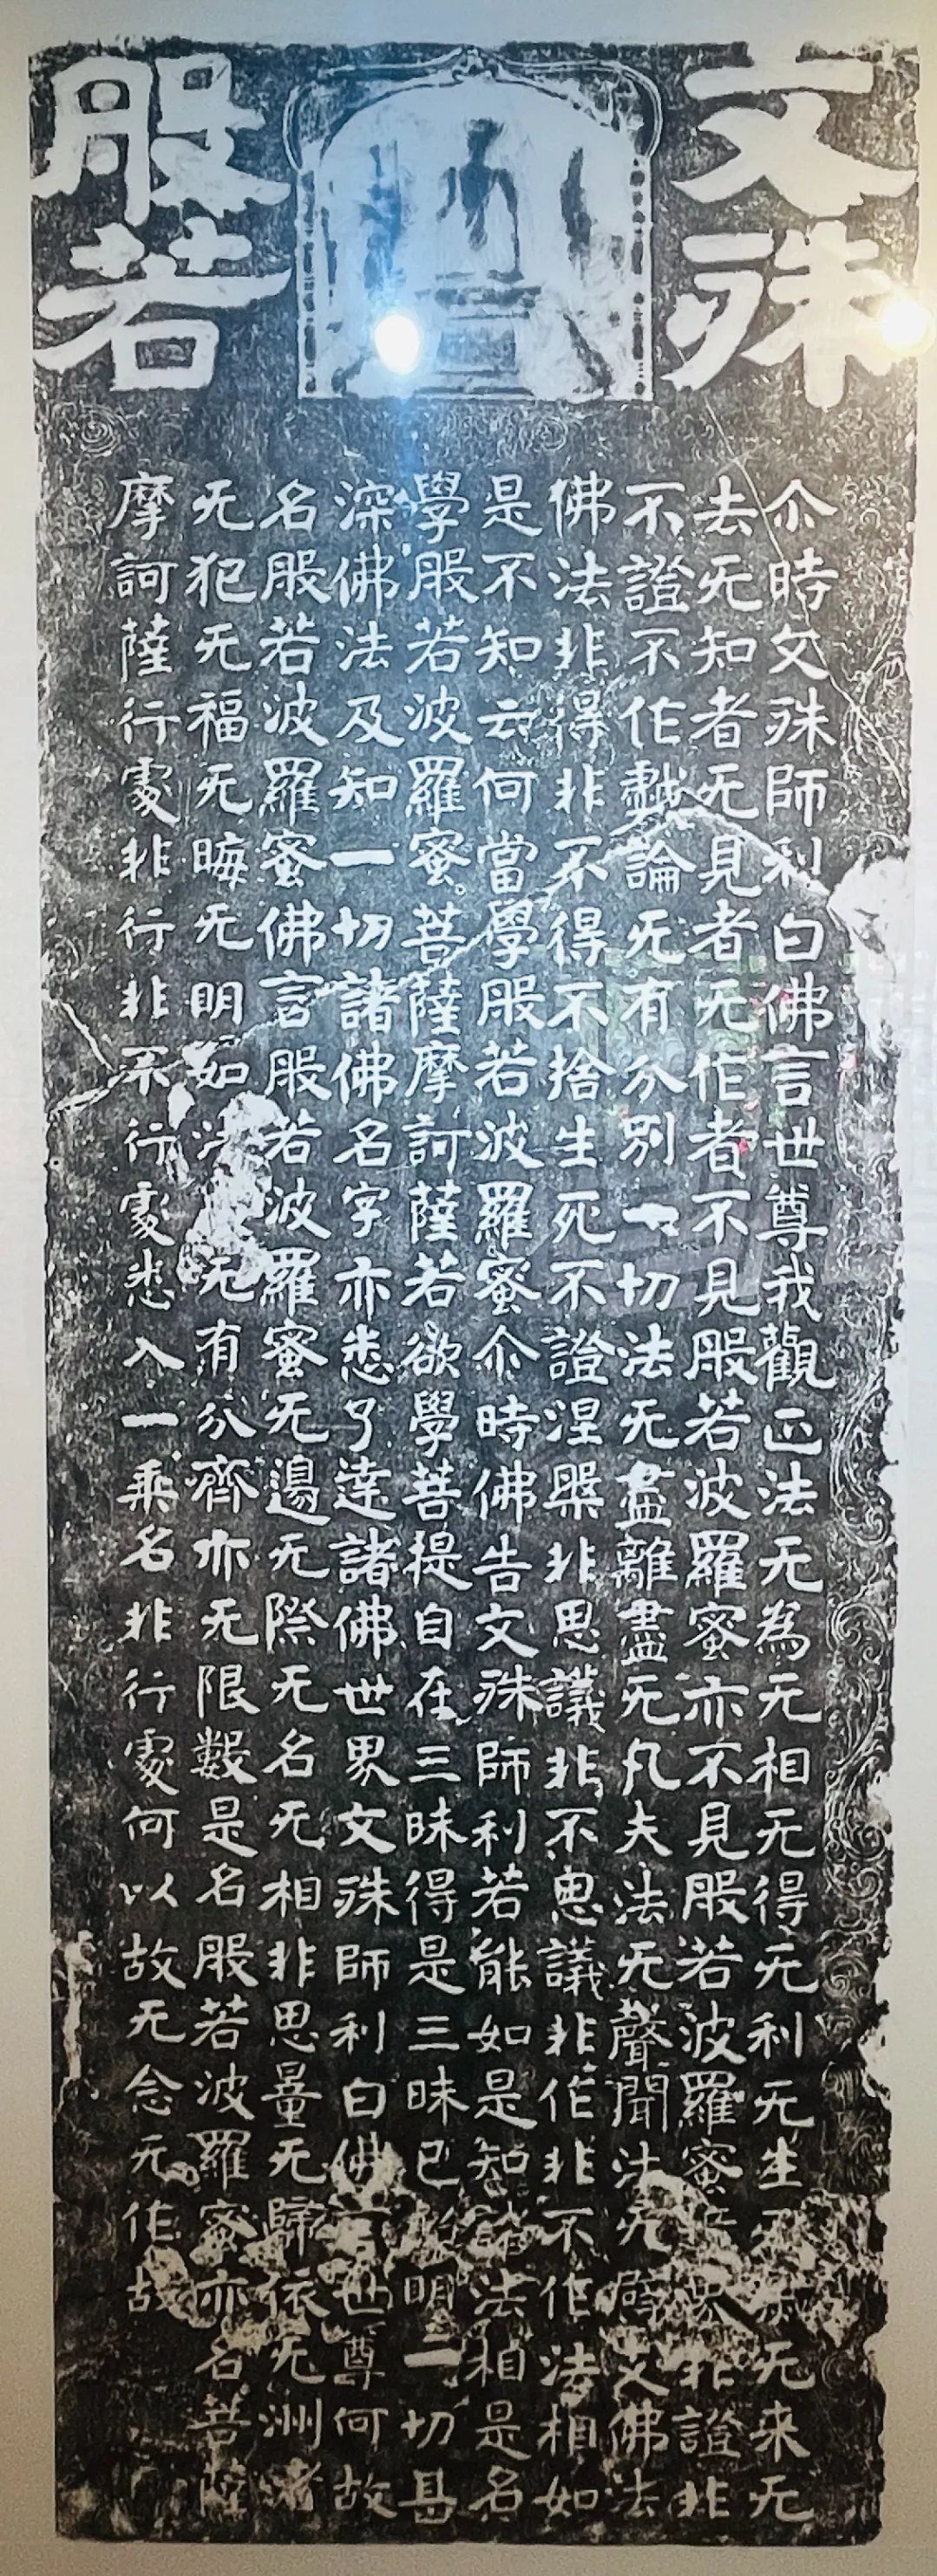 文殊
般若
尒時文殊師利白佛言世尊我觀正法无為无相无得无利无生无来无
去无知者无見者无作者不見般若波羅蜜亦不見般若波羅蜜界非證非
不證不作戲論无有分別一切法无盡離盡无凡夫法无聲聞法无辟支佛法
佛法非得非不得不捨生死不證涅槃非思議非不思議非作非不作法相如
是不知云何當學般若波羅蜜尒時佛告文殊師利若能如是知諸法相是名
學般若波羅蜜菩薩摩訶薩若欲學菩提自在三昧得是三昧已明一切甚
深佛法及知一切諸佛名字亦悉了達諸佛世界文殊師利白佛言世尊何故
名般若波羅蜜佛言般若波羅蜜无邊无際无名无相非思量无歸依无洲渚
无犯无福无晦无明如法无有分齊亦无限數是名般若波羅蜜亦名菩薩
摩訶薩行處非行非不行處悉入一乘名非行處何以故无念无作故